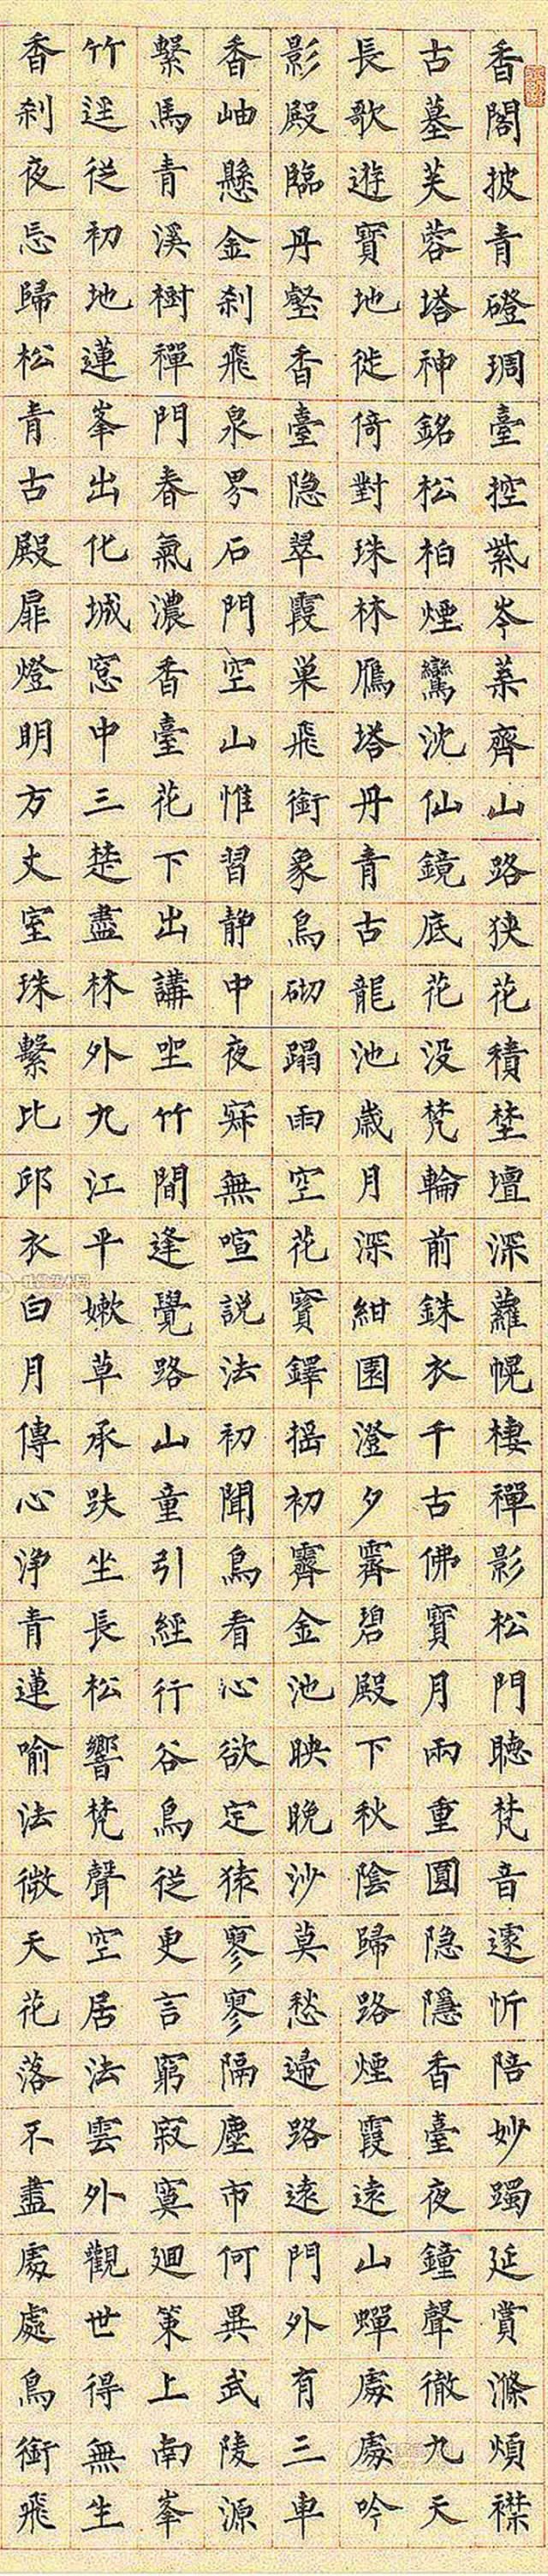 香閣披青磴琱臺控紫岑葉齊山路狹花積埜壇深蘿幌棲禪影松門聽梵音遽忻陪妙躅延賞滌煩襟
古墓芙蓉塔神銘松柏煙鸞沈仙鏡底花没梵輪前銖衣千古佛寶月兩重圓隐隱香臺夜鐘聲徹九天
長歌遊寶地徙倚對珠林鴈塔丹青古龍池歲月深紺園澄夕霽碧殿下秋陰歸路煙霞遠山蟬處處吟
影殿臨丹壑香臺隐翠霞巢飛銜象鳥砌蹋雨空花寳鐸摇初霽金池映晚沙莫愁歸路遠門外有三車
香岫懸金刹飛泉界石門空山惟習静中夜寂無喧説法初聞鳥看心欲定猿寥寥隔塵市何異武陵源
繫馬青溪樹禪門春氣濃香臺花下出講坐竹間逢覺路山童引經行谷鳥從更言窮寂寞廻策上南峯
竹逕從初地蓮峯出化城窓中三楚盡林外九江平嫩草承趺坐長松響梵聲空居法雲外觀世得無生
香刹夜忘歸松青古殿扉燈明方丈室珠繫比邱衣白月傳心浄青蓮喻法微天花落不盡處處鳥銜飛